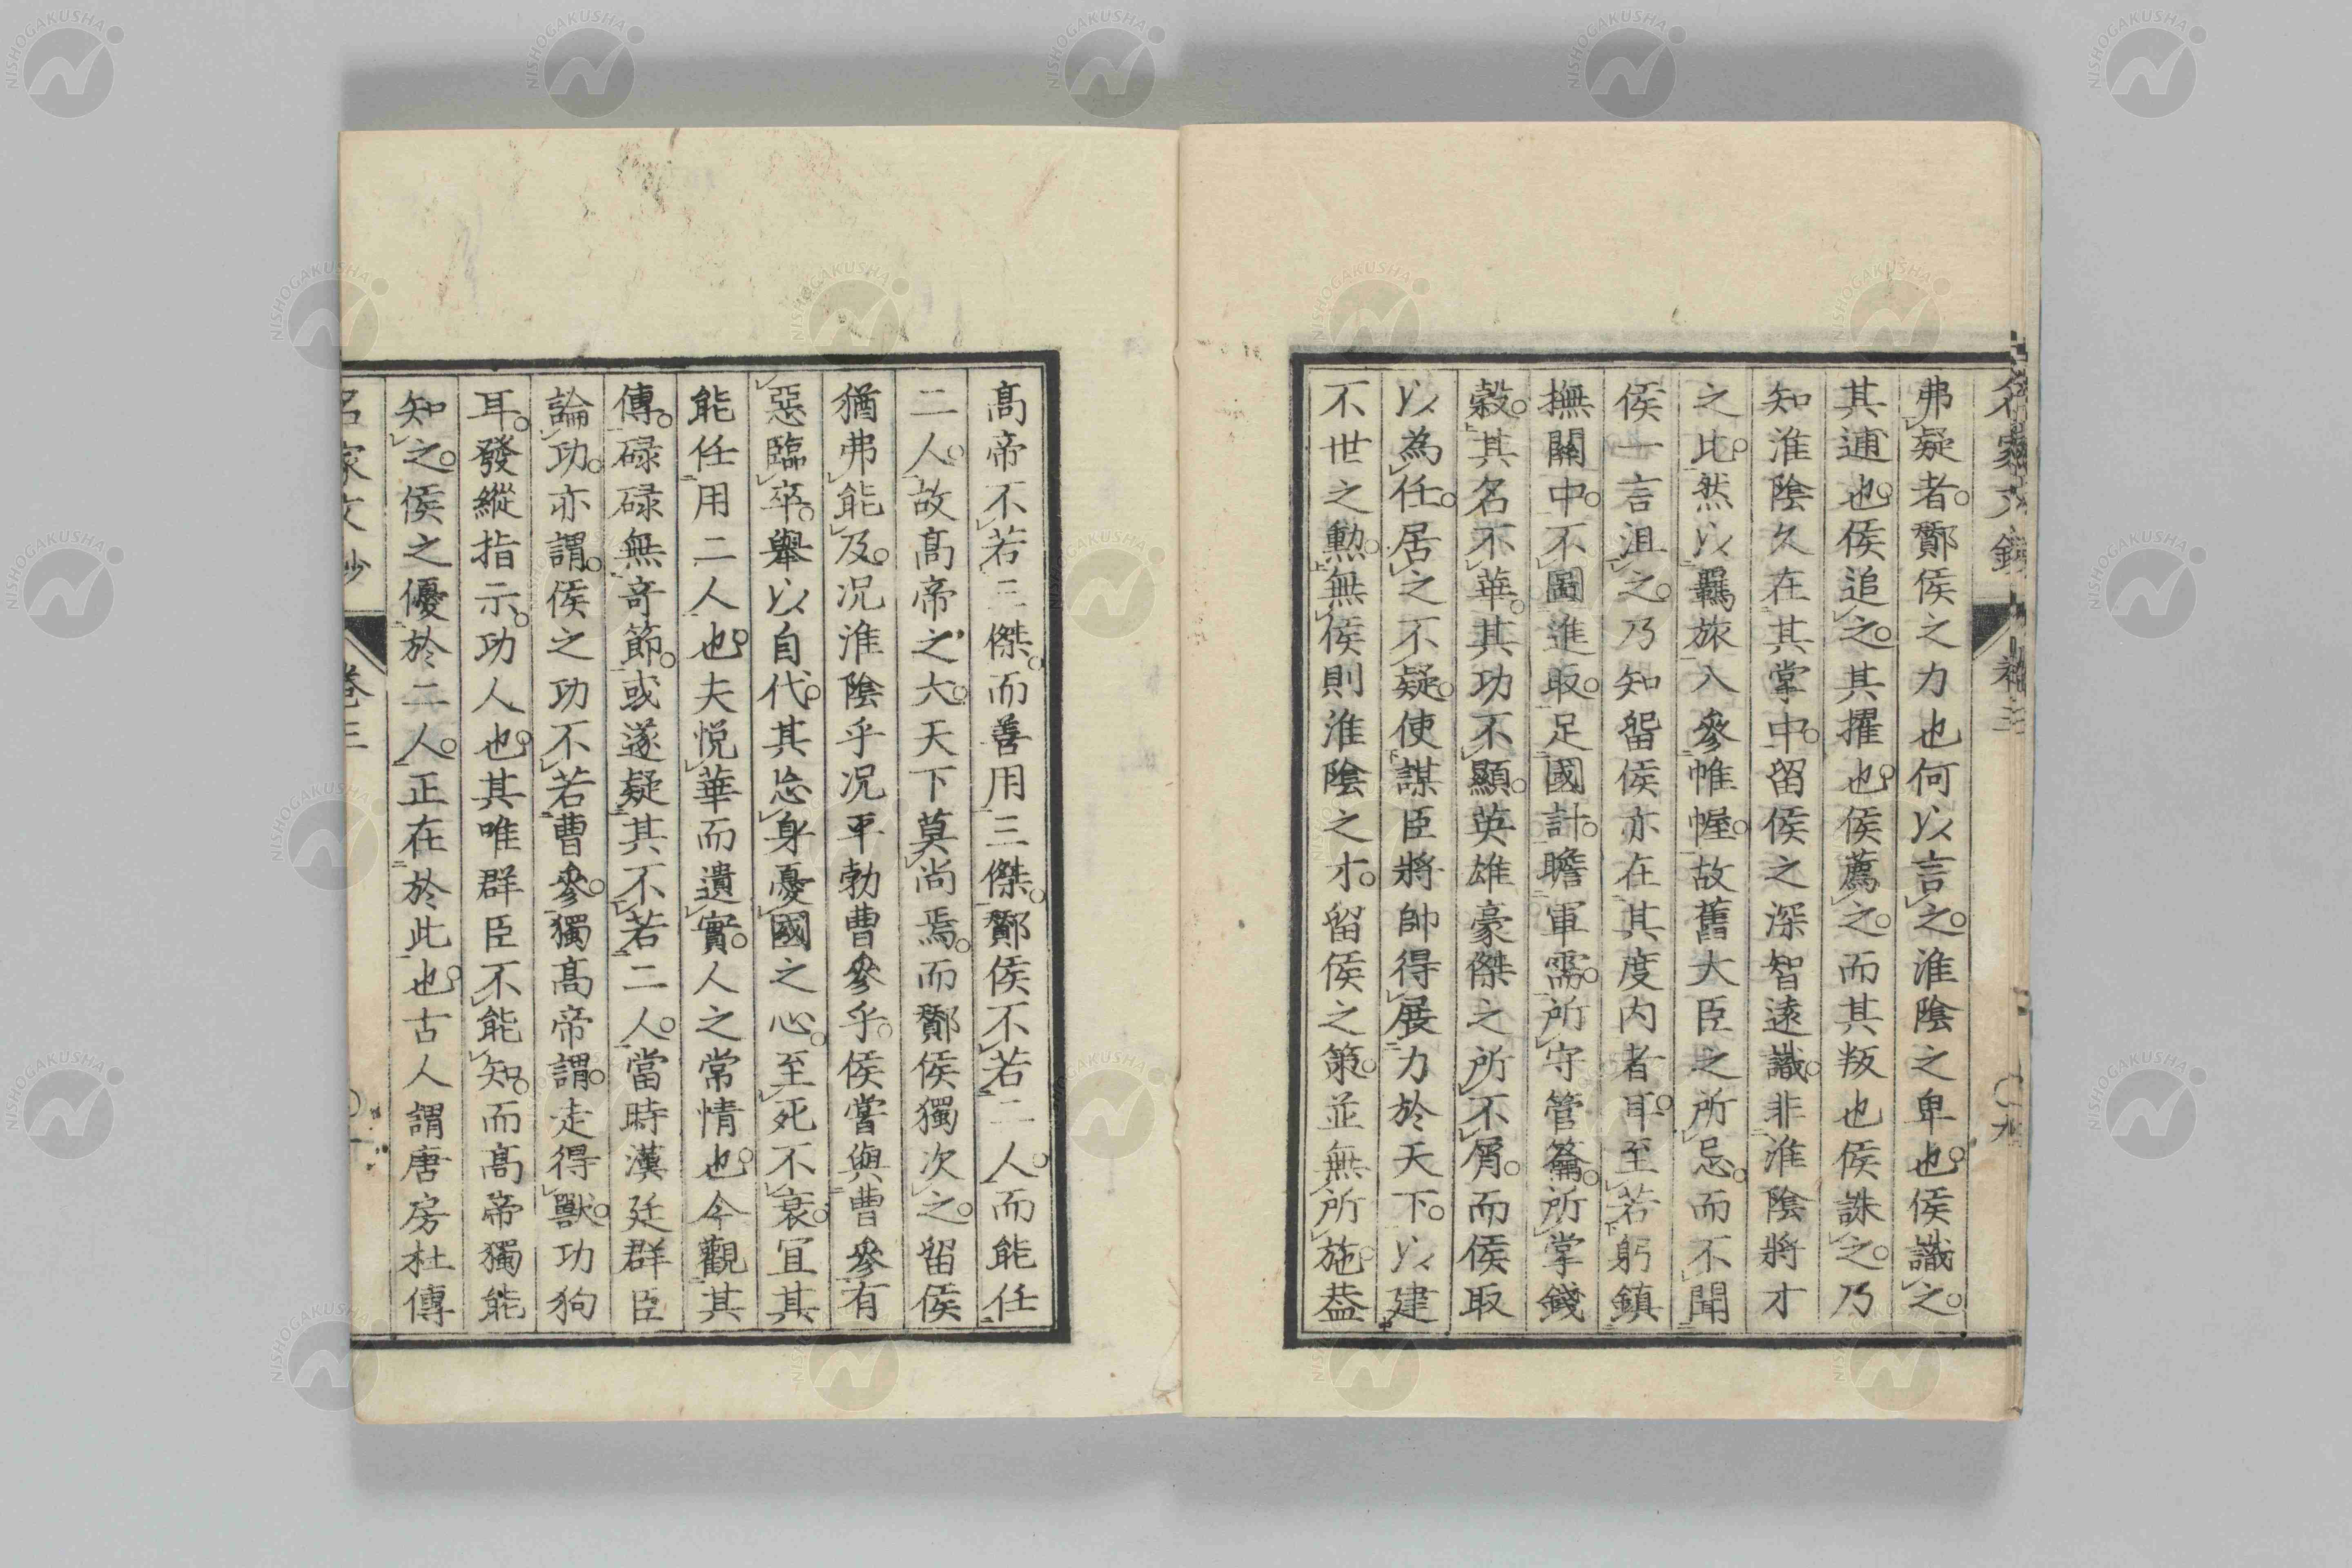 弗疑者。酇侯之力也何以言之。淮陰之卑也。侯識之。
其逋也。侯追之。其擢也。侯薦之。而其叛也侯誅之。乃
知淮陰久在其掌中。留侯之深智遠識。非淮陰將才
之比。然以羈旅入參帷幄。故舊大臣之所忌。而不聞
侯一言沮之。乃知留侯亦在其度內者耳。至若躬鎮
撫關中。不圖進取。足國計。瞻軍需。所守管籥。所掌錢
穀。其名不華。其功不顯。英雄豪傑之所不屑。而侯取
以為任。居之不疑。使謀臣將帥得展力於天下。以建
不世之勲。無侯則淮陰之才。留侯之策。並無所施。葢
高帝不若三傑。而善用三傑。酇侯不若二人。而能任
二人。故高帝之大。天下莫尚焉。而酇侯獨次之。留侯
猶弗能及。况淮陰乎况平勃曹參乎。侯嘗與曹參有
惡臨卒。舉以自代。其忘身憂國之心。至死不衰。宜其
能任用二人也。夫悅華而遺實。人之常情也。今觀其
傳。碌碌無奇節。或遂疑其不若二人。當時漢廷群臣
論功。亦謂。侯之功不若曹參。獨高帝謂。走得獸。功狗
耳。發縱指示。功人也。其唯群臣不能知。而高帝獨能
知之。侯之優於二人。正在於此也。古人謂唐房杜傳
名家文抄
卷三